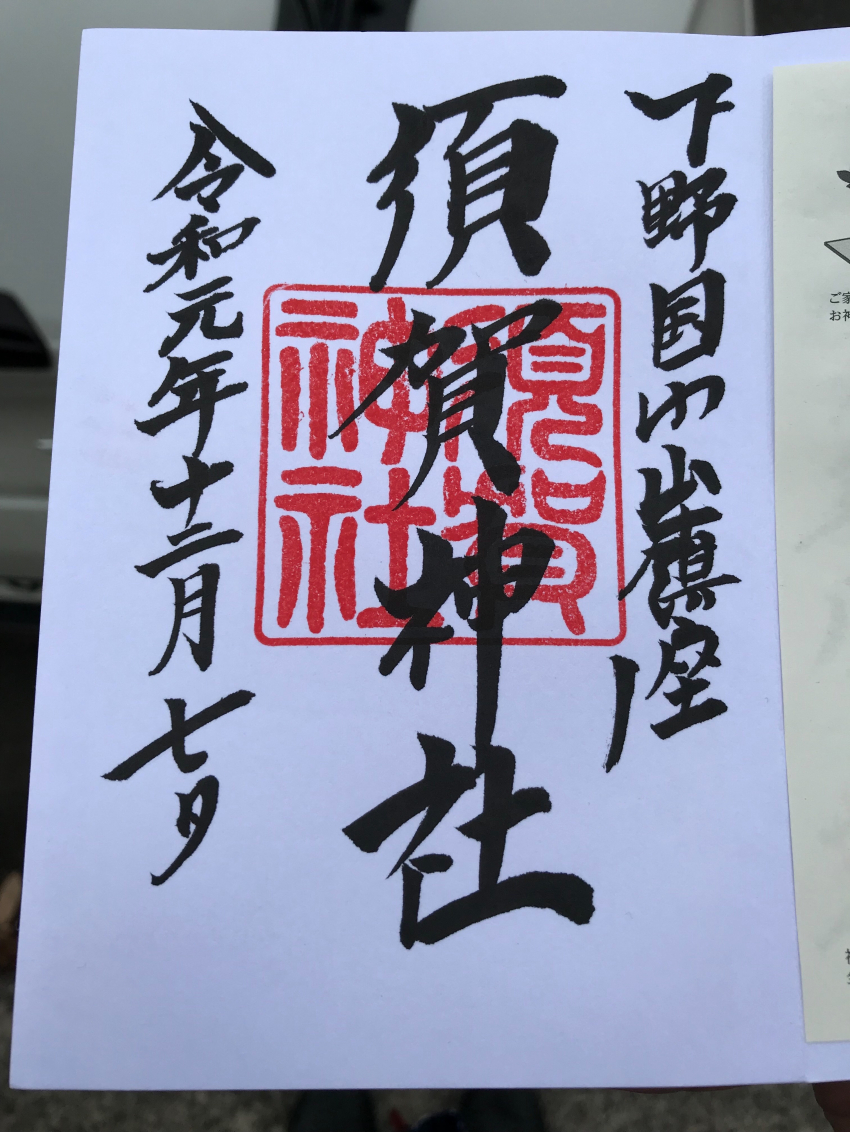 下野国小山鎮座
須賀神社
令和元年十二月七日
須賀
神社
ご家
お神